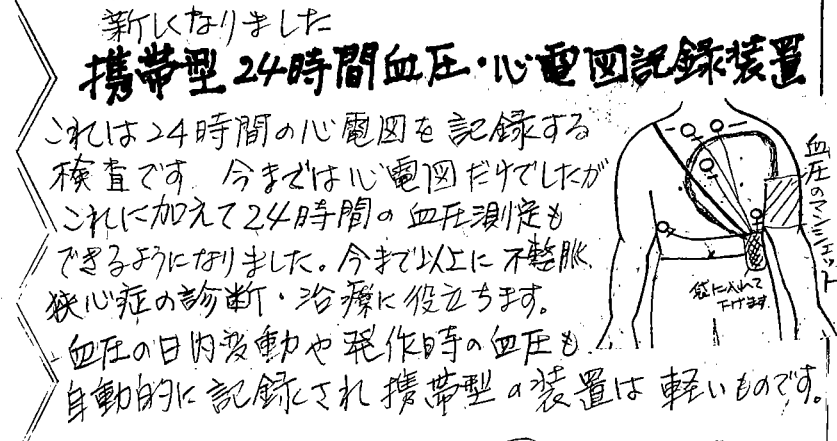 新しくなりました
携帯型24時間血圧・心電図記録装置
これは24時間の心電図を記録する
検査です。今までは心電図だけでしたが
これに加えて24時間の血圧測定も
できるようになりました。今まで以上に不整脈
狭心症の診断・治療に役立ちます。
血圧の日内変動や発作時の血圧も
自動的に記録され携帯型の装置は軽いものです。
血圧のマンシェット
袋に入れて
下げます